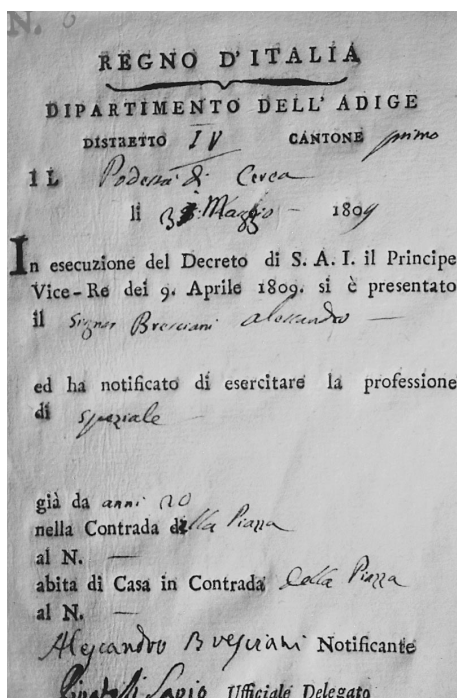 N. 6
REGNO D'ITALIA
DIPARTIMENTO DELL' ADIGE
DISTRETTO IV CANTONE primo
IL Podestà di Cerea
li Maggio - 1809
In esecuzione del Decreto di S. A. I. il Principe
Vice-Re dei 9. Aprile 1809. si è presentato
il Signor Bresciani Alessandro -
ed ha notificato di esercitare la professione
di speziale -
già da anni 20
nella Contrada della Piazza
al N. -
abita di Casa in Contrada Della Piazza
al N. -
Alessandro Bresciani Notificante
Ufficiale Delegato